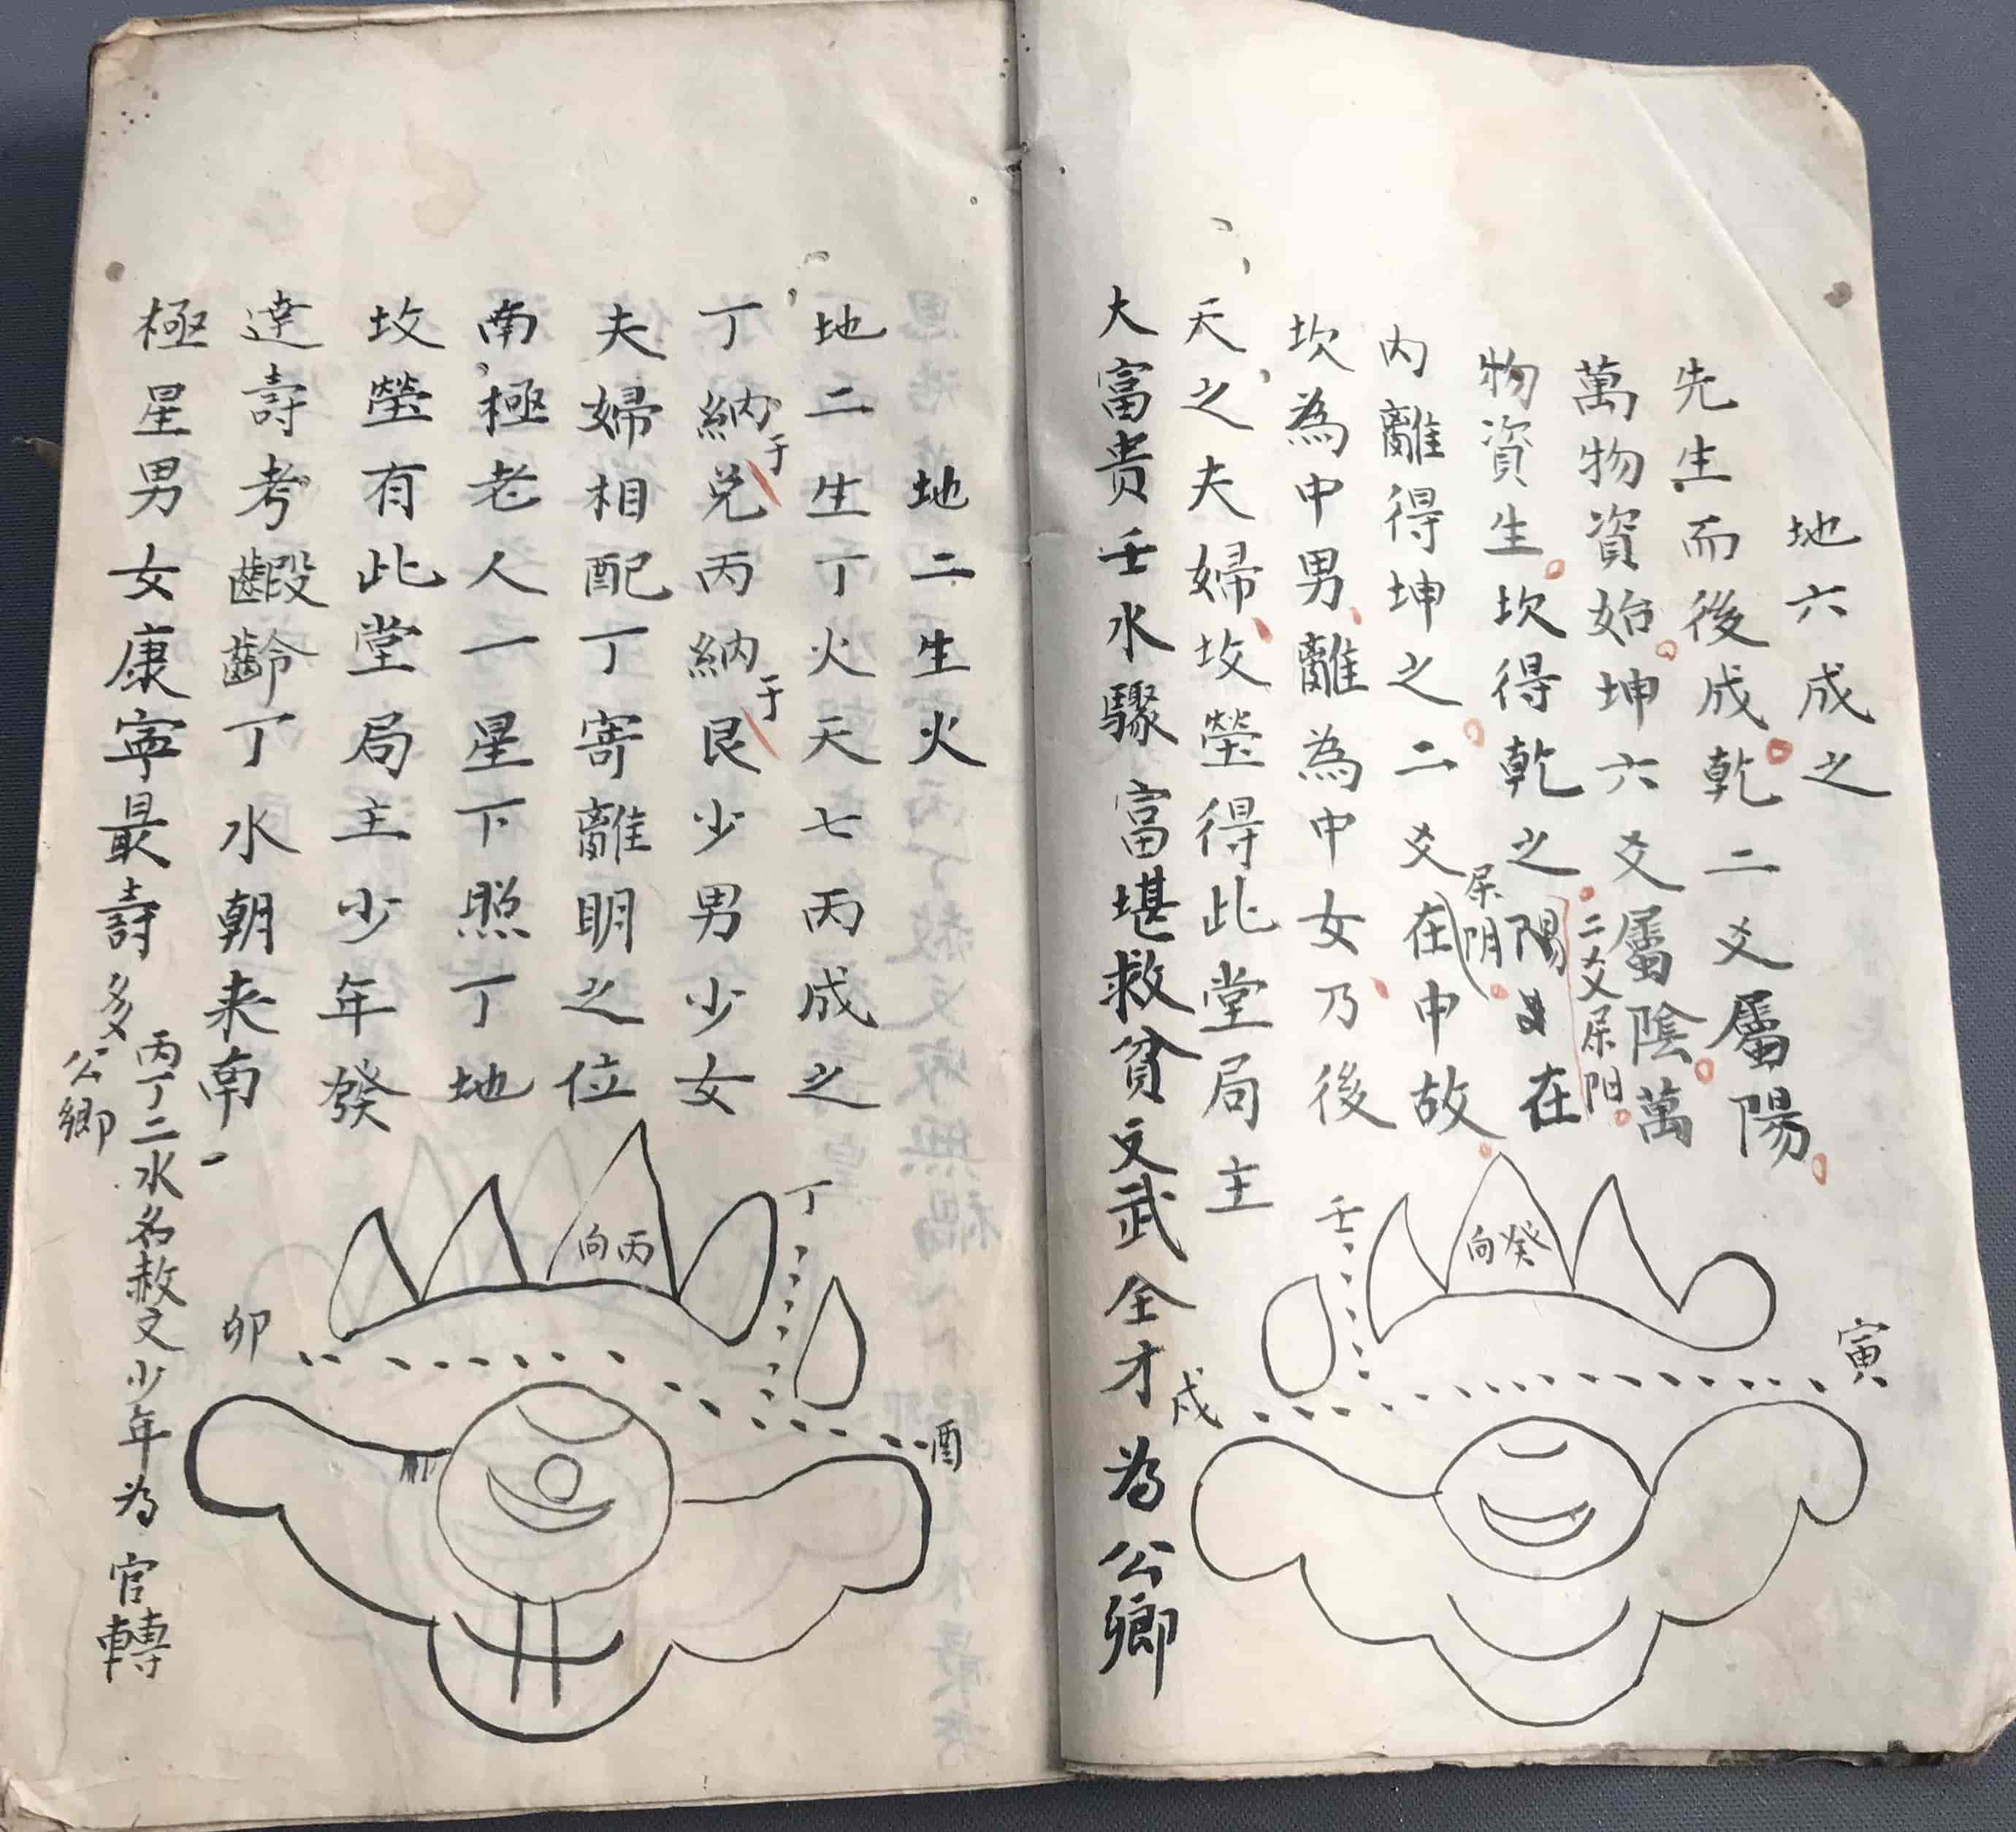 地六成之
先生而後成乾二爻屬陽
萬物資始坤六爻屬陰萬
物資生坎得乾之陽在
二爻屎阳
内離得坤之二爻在中故
屎阴
坎為中男離為中女乃後
天之夫婦坟塋得此堂局主
大富贵壬水驟富堪救貧文武全才為公卿
壬
向癸
寅
戌
地二生火
地二生丁火天七丙成之
丁納于兑丙納于艮少男少女
夫婦相配丁寄離明之位
南極老人一星下照丁地
坟塋有此堂局主少年發
達壽考齡丁水朝来南
極星男女康寧最壽多
丙丁二水名赦文少年為官轉
公卿
丁
向丙
卯
酉